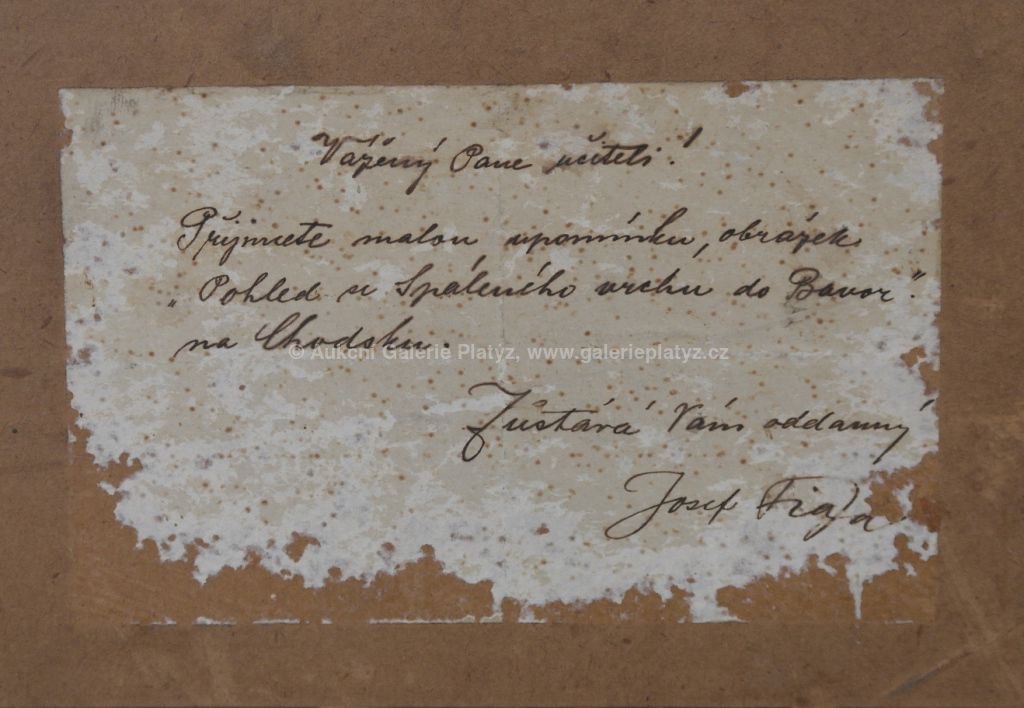 Vážený Pane učiteli!
Přijmete malou upomínku, obrázek
„Pohled se Spáleného vrchu do Bavor".
na Chodsku.
© Aukční Galerie Platýz, www.galerieplatyz.cz
Zůstává Vám oddanný
Josef Fiala.